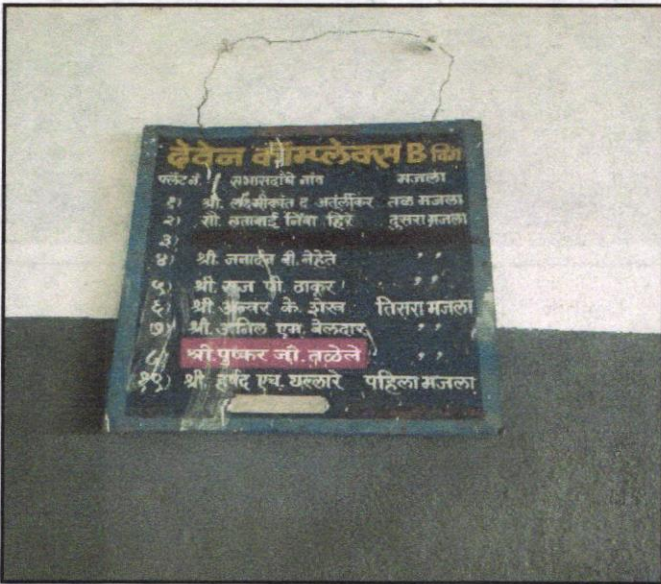 देवेन कॉम्प्लेक्स B विंग
फ्लॅट नं. सभासदांचे नांव मजला
१) श्री. लक्ष्मीकांत द. अर्तुर्लीकर तळ मजला
२) सौ. लताबाई निंबा हिरे दुसरा मजला
३)
४) श्री. जनार्दन बी. नेहेते ,,
५) श्री. राज पी. ठाकुर ,,
६) श्री अन्वर के. शेख तिसरा मजला
७) श्री. अनिल एम. बेलदार ,,
८) श्री. पुष्कर जी. तळेले ,,
श्री. हर्षद एच. यल्लारे पहिला मजला